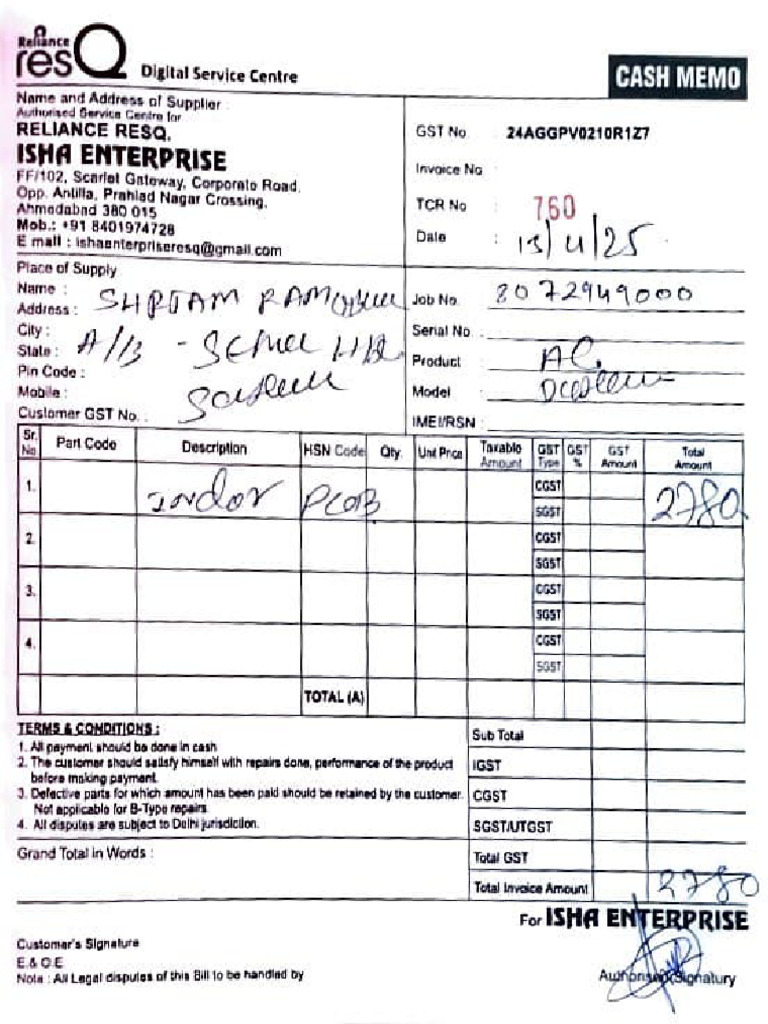 Reliance
resQ
Digital Service Centre
CASH MEMO
Name and Address of Supplier
Authorised Service Centre for
RELIANCE RESQ.
ISHA ENTERPRISE
FF/102, Scarlet Gateway, Corporate Road,
Opp. Antilla, Prahlad Nagar Crossing,
Ahmedabad 380 015
Mob.: +91 8401974728
E mail : ishaenterpriseresq@gmail.com
GST No. : 24AGGPV0210R1Z7
Invoice No
TCR No : 760
Date :
Place of Supply
Name :
Address :
City :
State : A/B -
Pin Code :
Mobile :
Customer GST No. :
Job No. : 8072949000
Serial No. :
Product : AC.
Model :
IMEI/RSN :
Sr. No. Part Code Description HSN Code Qty. Unit Price Taxable Amount GST Type GST % GST Amount Total Amount
1. Indor PCB CGST 2780
SGST
2. CGST
SGST
3. CGST
SGST
4. CGST
SGST
TOTAL (A)
TERMS & CONDITIONS :
1. All payment should be done in cash
2. The customer should satisfy himself with repairs done, performance of the product
before making payment.
3. Defective parts for which amount has been paid should be retained by the customer.
Not applicable for B-Type repairs
4. All disputes are subject to Delhi jurisdiction.
Grand Total in Words :
Sub Total
IGST
CGST
SGST/UTGST
Total GST
Total Invoice Amount 2780
For ISHA ENTERPRISE
Customer's Signature
E & O E
Note : All Legal disputes of this Bill to be handled by
Authorised Signatury